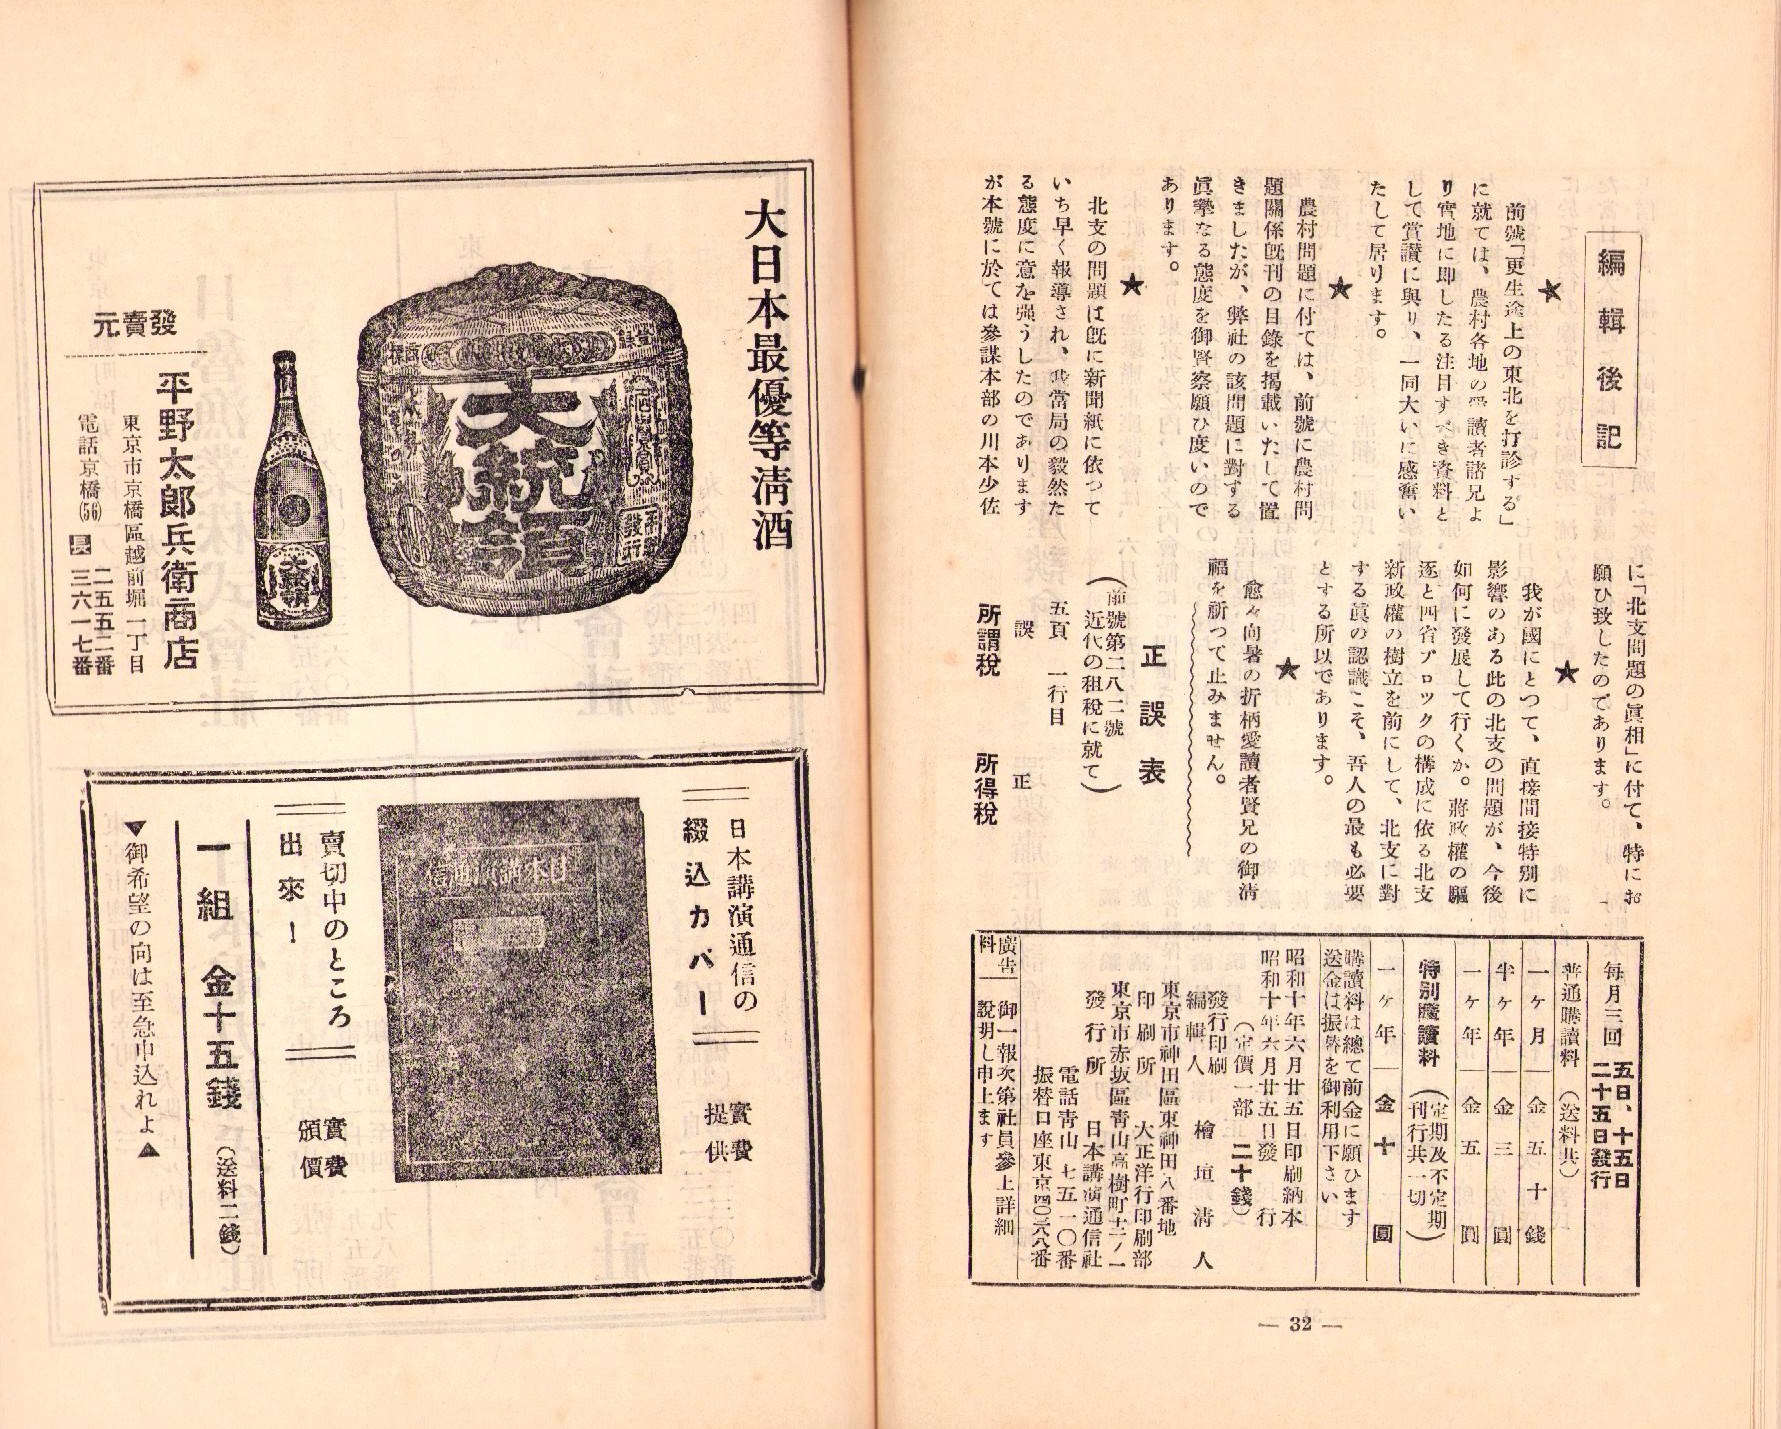 編輯後記
★
前號「更生途上の東北を打診する」
に就ては、農村各地の愛讀者諸兄よ
り實地に即したる注目すべき資料と
して賞讃に與り、一同大いに感奮い
たして居ります。
★
農村問題に付ては、前號に農村問
題關係既刊の目錄を揭載いたして置
きましたが、弊社の該問題に對する
眞摯なる態度を御賢察願ひ度いので
あります。
★
北支の問題は既に新聞紙に依つて
いち早く報導され、我當局の毅然た
る態度に意を强うしたのであります
が本號に於ては參謀本部の川本少佐
に「北支問題の眞相」に付て、特にお
願ひ致したのであります。
★
我が國にとつて、直接間接特別に
影響のある此の北支の問題が、今後
如何に發展して行くか。蔣政權の驅
逐と四省ブロックの構成に依る北支
新政權の樹立を前にして、北支に對
する眞の認識こそ、吾人の最も必要
とする所以であります。
★
愈々向暑の折柄愛讀者賢兄の御清
福を祈つて止みません。
正誤表
(前號第二八二號
近代の租稅に就て)
五頁 一行目
誤 正
所謂稅 所得稅
每月三回 五日、十五日
二十五日發行
普通購讀料 (送料共)
一ヶ月 金五十錢
半ヶ年 金三圓
一ヶ年 金五圓
特別購讀料 (定期及不定期
刊行共一切)
一ヶ年 金十圓
購讀料は總て前金に願ひます
送金は振替を御利用下さい
昭和十年六月廿五日印刷納本
昭和十年六月廿五日發行
(定價一部 二十錢)
發行印刷
編輯人 檜垣淸人
東京市神田區東神田八番地
印刷所 大正洋行印刷部
東京市赤坂區靑山高樹町十二ノ一
發行所 日本講演通信社
電話靑山 七五一〇番
振替口座東京四〇六六八番
廣告料 御一報次第社員參上詳細
說明し申上ます
— 32 —
大日本最優等淸酒
登錄
商標
大統領
平野
發行
大統領
發賣元
平野太郎兵衛商店
東京市京橋區越前堀一丁目
電話京橋(56) 二五五二番
長 三六一七番
日本講演通信の
綴込カバー
實費
提供
日本講演通信
賣切中のところ
出來!
實費
頒價
一組 金十五錢 (送料二錢)
▼御希望の向は至急申込れよ▲